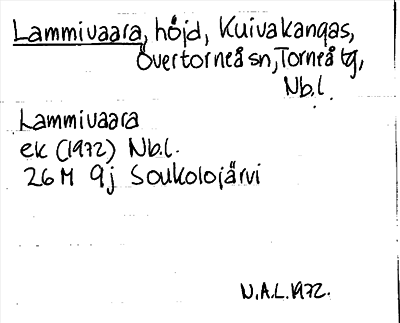 Lammivaara, höjd, Kuivakangas,
Övertorneå sn, Torneå tg,
Nb.l.
Lammivaara
ek (1972) Nb.l.
26 M 9j Soukolojärvi
N.A.L. 1972.